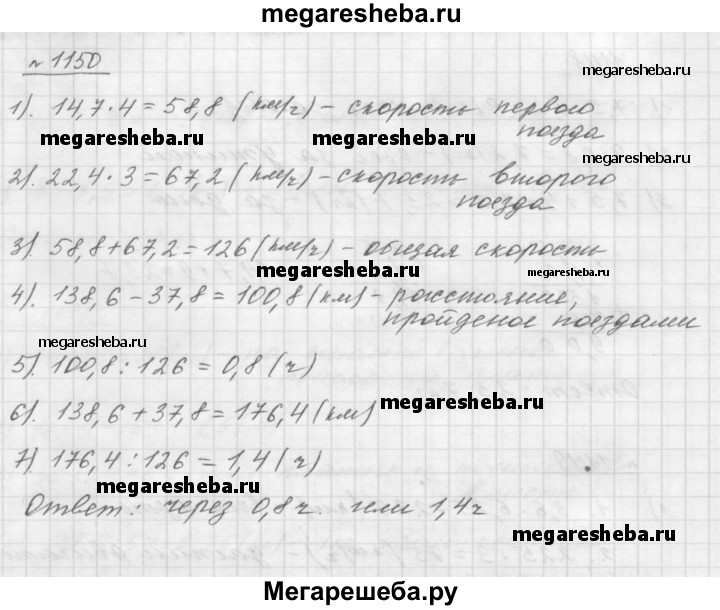 megaresheba.ru
№1150
megaresheba.ru
1). 14,7·4=58,8 (км/ч) - скорость первого
поезда
megaresheba.ru megaresheba.ru
megaresheba.ru
2). 22,4·3=67,2 (км/ч) - скорость второго
поезда
3). 58,8+67,2=126 (км/ч) - общая скорость
megaresheba.ru megaresheba.ru
4). 138,6-37,8=100,8 (км) - расстояние,
пройденое поездами
megaresheba.ru
5). 100,8:126=0,8 (ч)
6). 138,6+37,8=176,4 (км)
megaresheba.ru
7). 176,4:126=1,4 (ч)
megaresheba.ru
Ответ: через 0,8 ч или 1,4ч
megaresheba.ru
Мегарешеба.ру